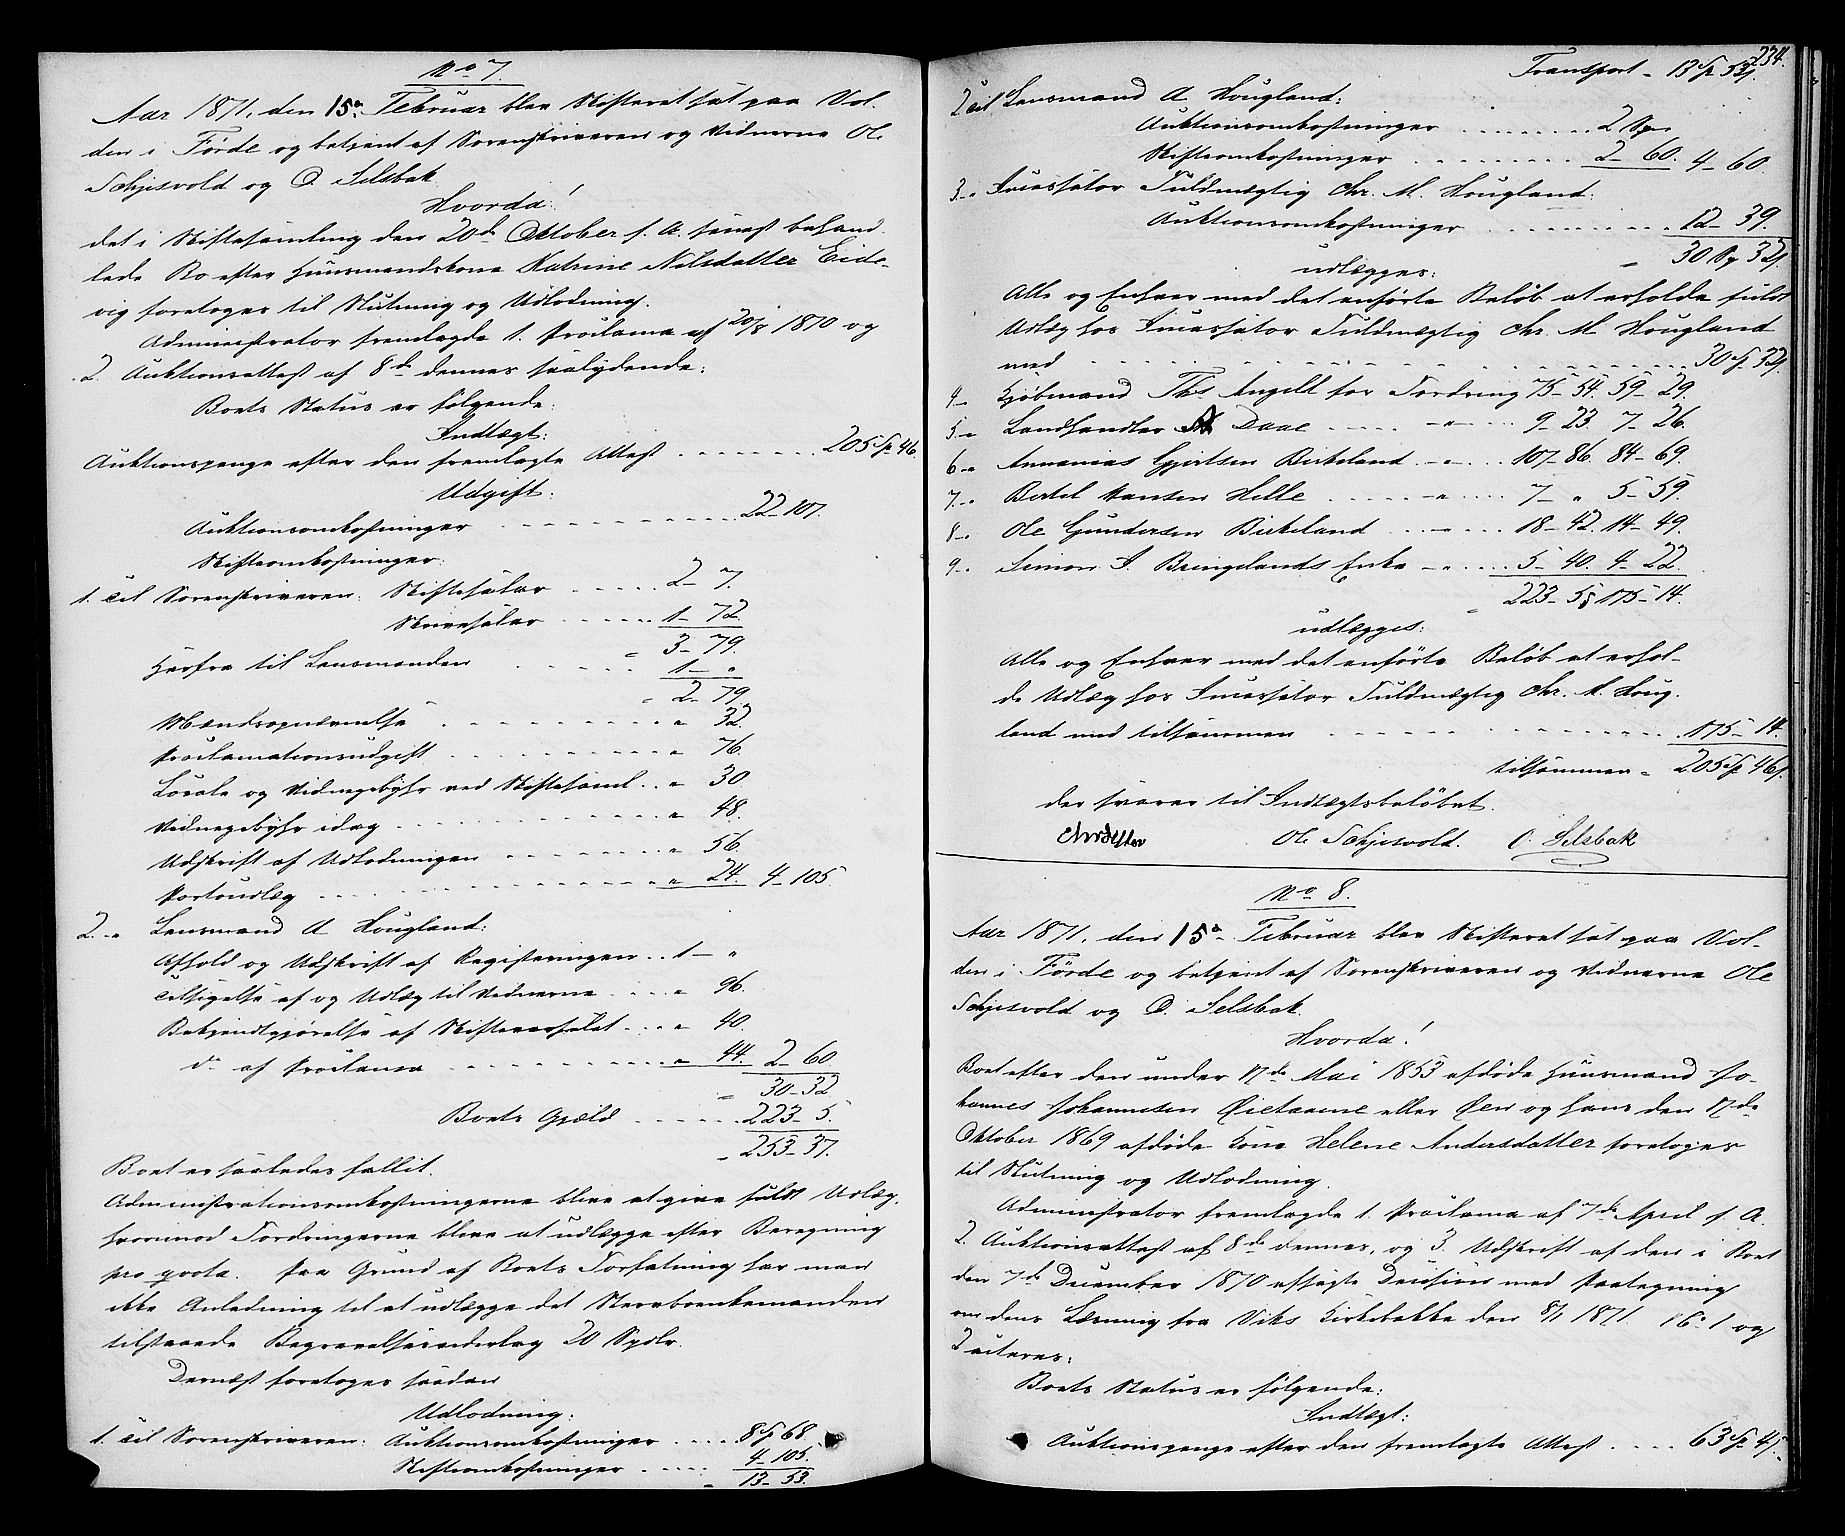 No 7.
Aar 1871, den 15de Februar blev Skifteret sat paa Vol-
den i Førde og betjent af Sorenskriveren og Vidnerne Ole
Schjesvold og O. Selsbak
Hvorda!
det i Skiftesamling den 20de Oktober f. A. senest behand-
lede Bo efter Huusmandskone Katrine Nilsdatter Eide-
vig foretoges til Slutning og Udlodning.
Administrator fremlagde 1. Proclama af 20/8 1870 og
2. Auktionsattest af 8de dennes saalydende:
Boets Status er følgende:
Indtægt:
Auktionspenge efter den fremlagte Attest ........ 205 Sp 46.
Udgift:
Auktionsomkostninger ........ 22 - 107.
Skifteomkostninger:
1. Til Sorenskriveren: Skiftesalær ..... 2 - 7.
Skrivesalær ..... 1 - 72.
= 3 - 79.
Herfra til Lensmanden ..... 1 - "
= 2 - 79.
Mandsopnævnelse ........ " 32.
Proclamationsudgift ........ " 76.
Locale og Vidnegebyhr ved Skiftesaml. .. " 30.
Vidnegebyhr idag ........ " 48.
Udskrift af Udlodningen ........ " 56.
Portoudlæg ........ " 24. 4 - 105.
2. " Lensmand A Hougland:
Afhold og Udskrift af Registeringen .. 1 - "
Tilsigelse af og Udlæg til Vidnerne .... " 96.
Bekjendtgjørelse af Skifteresultat .... " 40.
do af Proclama ........ " 44. 2 - 60
= 30 - 32
Boets Gjæld ...... 223 - 5.
= 253 - 37.
Boet er saaledes fallit.
Administrationsomkostningerne blive at give fuldt Udlæg,
hvorimod Fordringerne blive at udlægge efter Beregning
pro qvota. Paa Grund af Boets Forfatning har man
ikke Anledning til at udlægge det Stervboenkemanden
tilstaaede Begravelsesvederlag 20 Spdlr.
Dernæst foretoges saadan
Udlodning:
1. Til Sorenskriveren: Auktionsomkostninger .... 8 Sp 68.
Skifteomkostninger ..... 4 - 105.
= 13 - 53.
234.
Transport - 13 Sp 53 s.
2 til Lensmand A Hougland:
Auktionsomkostninger ........ 2 Sp "
Skifteomkostninger ........ 2 - 60. 4 - 60.
3 - " Incassator Fuldmægtig Chr. M. Hougland:
Auktionsomkostninger ........ 12 - 39.
= 30 Sp 32 s.
udlægges:
Alle og Enhver med det anførte Beløb at erholde fuldt
Udlæg hos Incassator Fuldmægtig Chr. M Hougland
med ........ 30 Sp. 32 s.
4 - Kjøbmand Ths Angell for Fordring 75 - 54. 59 - 29.
5 - " Landhandler Daae ..... - " - ... 9 - 23. 7 - 26.
6 - " Annanias Gjertsen Birkeland - " - ... 107 - 86. 84 - 69.
7 - " Bertel Hansen Hille ..... - " ..... 7 - " 5 - 59.
8 - " Ole Gundersen Birkeland ... - " - ... 18 - 42. 14 - 49.
9 - " Simon S. Bringelands Enke - " - .... 5 - 40. 4 - 22.
= 223 - 5 s 175 - 14.
udlægges:
Alle og Enhver med det anførte Beløb at erhol-
de Udlæg hos Incassator Fuldmægtig Chr. M. Houg-
land med tilsammen ........ 175 - 14.
tilsammen = 205 Sp 46 s.
der svarer til Indtægtsbeløbet.
Ole Schjesvold. O. Selsbak
No 8.
Aar 1871, den 15de Februar blev Skifteret sat paa Vol-
den i Førde og betjent af Sorenskriveren og Vidnerne Ole
Schjesvold og O. Selsbak.
Hvorda!
Boet efter den under 17de Mai 1853 afdøde Huusmand Jo-
hannes Johannesen Øietaaene eller Øen og hans den 17de
Oktober 1869 afdøde Kone Helene Andersdatter foretoges
til Slutning og Udlodning.
Administrator fremlagde 1. Proclama af 7de April f. A.
2. Auktionsattest af 8de dennes, og 3. Udskrift af den i Boet
den 7de December 1870 afsagte Decision med Paategning
om dens Læsning fra Viks Kirkebakke den 8/1 1871. No 1 og
2 citeres:
Boets Status er følgende:
Indtægt:
Auktionspenge efter den fremlagte Attest ..... 63 Sp 45.